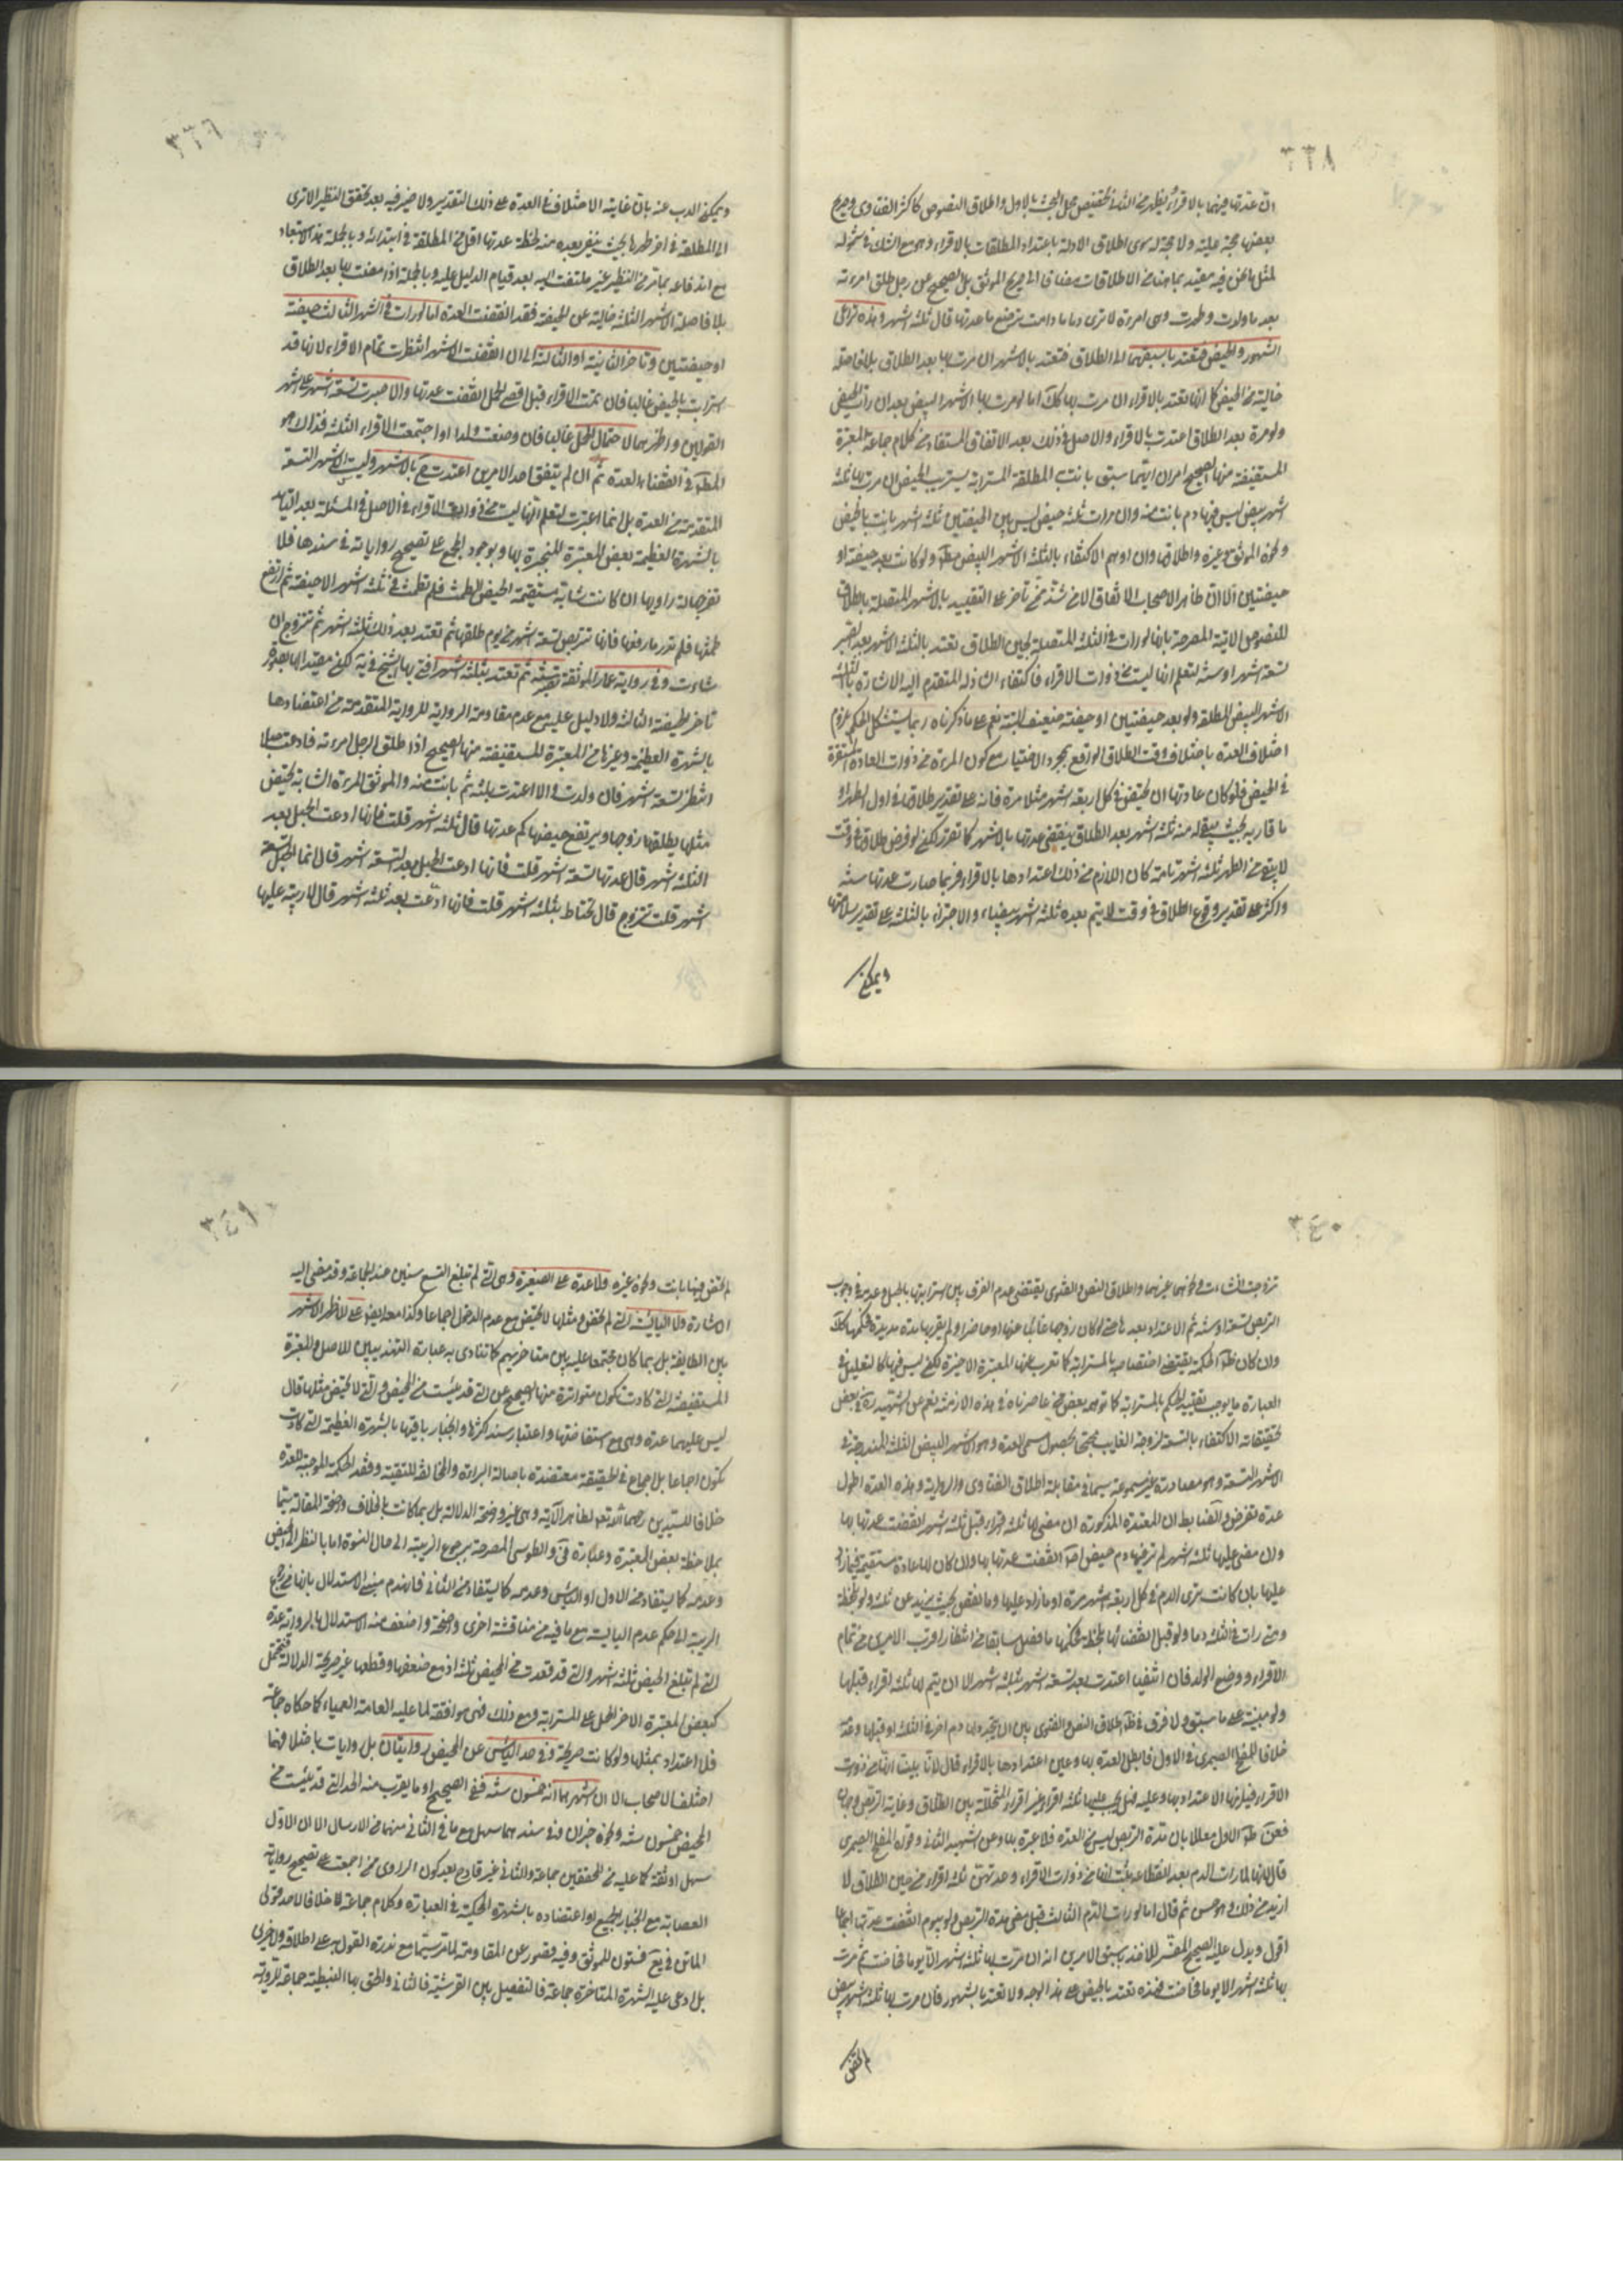 ٣٣٨
ان عدتها فيهما بالاقراء ويظهر من الثاني تخصيص محل البحث بالاول واطلاق النصوص كاكثر الفتاوى وصريح
بعضها حجة عليه ولا حجة له سوى اطلاق الادلة باعتداد المطلقات بالاقراء وهو مع الشك في شموله
لمثل ما نحن فيه مقيد بما هنا من الاطلاقات مضافا الى صريح الموثق بل الصحيح عن رجل طلق امرءته
بعد ما ولدت وطهرت وهي امرءة لا ترى دما ما دامت ترضع ما عدتها قال ثلثة اشهر وهذه تراعى
الشهور والحيض فتعتد باسبقهما الى الطلاق فتعتد بالاشهر ان مرت بها بعد الطلاق بلا فاصلة
خالية من الحيض كما انها تعتد بالاقراء ان مرت بها كك اما لو مرت بها الاشهر البيض بعد ان رات الحيض
ولو مرة بعد الطلاق اعتدت بالاقراء والاصل في ذلك بعد الاتفاق المستفاد من كلام جماعة المعتبرة
المستفيضة منها الصحيح امران ايهما سبق بانت به المطلقة المسترابة تستريب الحيض ان مرت بها ثلثة
اشهر بيض ليس فيها دم بانت منه وان مرت ثلثة حيض ليس بين الحيضتين ثلثة اشهر بانت بالحيض
ونحوه الموثق وغيره واطلاقها وان اوهم الاكتفاء بالثلثة الاشهر البيض مط ولو كانت بعد حيضة او
حيضتين الا ان ظاهر الاصحاب الاتفاق الا من شذ ممن تاخر على التقييد بالاشهر المتصلة بالطلاق
للنصوص الاتية المصرحة بانها لو رات في الثلثة المتصلة بحين الطلاق تعتد بالثلثة الاشهر بعد الصبر
تسعة اشهر او سنة لتعلم انها ليست من ذوات الاقراء فاكتفاء الشاذ المتقدم اليه الاشارة بالثلثة
الاشهر البيض المطلقة ولو بعد حيضتين او حيضة ضعيف البتة نعم على ما ذكرناه ربما يستشكل الحكم بلزوم
اختلاف العدة باختلاف وقت الطلاق الواقع بمجرد الاختيار مع كون المرءة من ذوات العادة المستقرة
في الحيض فلو كان عادتها ان تحيض في كل اربعة اشهر مثلا مرة فانه على تقدير طلاقها في اول الطهر او
ما قاربه بحيث يبقى له منه ثلثة اشهر بعد الطلاق ينقضي عدتها بالاشهر كما تقرر لكن لو فرض طلاقها في وقت
لا يبقى من الطهر ثلثة اشهر تامة كان اللازم من ذلك اعتدادها بالاقراء فربما صارت عدتها سنة
واكثر على تقدير وقوع الطلاق في وقت لا يتم بعده ثلثة اشهر بيضاء والاجتزاء بالثلثة على تقدير سلامتها
ويمكن
٣٣٩
ويمكن الذب عنه بان غاية الاختلاف في العدة على ذلك التقدير ولا ضير فيه بعد تحقق النظير الا ترى
الى المطلقة في اخر طهرها بحيث يبقى بعده منه لحظة عدتها اقل من المطلقة في ابتدائه وبالجملة هذا الاستبعاد
مع اندفاعه بما مر من النظير غير ملتفت اليه بعد قيام الدليل عليه وبالجملة اذا مضت لها بعد الطلاق
بلا فاصلة الاشهر الثلثة خالية عن الحيضة فقد انقضت العدة اما لو رات في الشهر الثالث حيضة
او حيضتين وتاخر الثانية او الثالثة الى ان انقضت الاشهر انتظرت تمام الاقراء لانها قد
استرابت بالحيض غالبا فان تمت الاقراء قبل اقصى الحمل انقضت عدتها والا صبرت تسعة اشهر على اشهر
القولين واظهرهما لاحتمال الحمل غالبا فان وضعت ولدا او اجتمعت الاقراء الثلثة فذاك هو
المطلوب في انقضاء العدة ثم ان لم يتفق احد الامرين اعتدت ح بالاشهر وليست الاشهر التسعة
المتقدمة من العدة بل انما اعتبرت لتعلم انها ليست من ذوات الاقراء والاصل في المسئلة بعد التايد
بالشهرة العظيمة بعض المعتبرة المنجبرة بها وبوجود المجمع على تصحيح رواياته في سندها فلا
تضر جهالة راويها ان كانت شابة مستقيمة الحيض الطمث فلم تطمث في ثلثة اشهر الا حيضة ثم ارتفع
طمثها فلم تدر ما رفعها فانها تتربص تسعة اشهر من يوم طلقها ثم تعتد بعد ذلك ثلثة اشهر ثم تتزوج ان
شاءت وفي رواية عمار الموثقة تصبر سنة ثم تعتد بثلثة اشهر افتى بها الشيخ في ية لكن مقيدا لها بصورة
تاخر الحيضة الثالثة ولا دليل عليه مع عدم مقاومة الرواية للرواية المتقدمة من اعتضادها
بالشهرة العظيمة وغيرها من المعتبرة المستفيضة منها الصحيح اذا طلق الرجل امرءته فادعت حبلا
انتظر تسعة اشهر فان ولدت والا اعتدت بثلثة ثم بانت منه والموثق المرءة الشابة تحيض
مثلها يطلقها زوجها ويرتفع حيضها كم عدتها قال ثلثة اشهر قلت فانها ادعت الحبل بعد
الثلثة اشهر قال عدتها تسعة اشهر قلت فانها ادعت الحبل بعد التسعة اشهر قال انما الحبل تسعة
اشهر قلت تتزوج قال تحتاط بثلثة اشهر قلت فانها ادعت بعد ثلثة اشهر قال لا ريبة عليها
٣٤٠
تزوجت ان شاءت ونحوهما غيرهما واطلاق النص والفتوى يقتضي عدم الفرق بين استرابتها بالحبل وعدمه في وجوب
التربص تسعة او سنة ثم الاعتداد بعدها حتى لو كان زوجها غائبا عنها او حاضرا ولم يقربها مدة مديدة فحكمها كك
وان كان ظ الحكمة يقتضي اختصاصه بالمسترابة كما تعرب عنها المعتبرة الاخيرة لكن ليس فيها كالتعليل في
العبارة ما يوجب تقييد الحكم بالمسترابة كما توهمه بعض من عاصرناه في هذه الازمنة نعم عن الشهيد ره في بعض
تحقيقاته الاكتفاء بالتسعة لزوجة الغايب محتجا بحصول مسمى العدة وهو الاشهر البيض الثلثة المندرجة في
الاشهر التسعة وهو مصادرة غير مسموعة سيما في مقابلة اطلاق الفتاوى والرواية وهذه العدة اطول
عدة تفرض والضابط ان المعتدة المذكورة ان مضى لها ثلثة اقراء قبل ثلثة اشهر انقضت عدتها بها
وان مضى عليها ثلثة اشهر لم تر فيها دم حيض اص انقضت عدتها بها وان كان لها عادة مستقيمة فيما زاد
عليها بان كانت ترى الدم في كل اربعة اشهر مرة او ما زاد عليها وما نقص بحيث يزيد عن ثلثة ولو بلحظة
ومتى رات في الثلثة دما ولو قبل انقضائها بلحظة فحكمها ما فصل سابقا من انتظار اقرب الامرين من تمام
الاقراء ووضع الولد فان انتفيا اعتدت بعد تسعة اشهر بثلثة اشهر الا ان يتم لها ثلثة اقراء قبلها
ولو مبنية على ما سبق ولا فرق في ظ اطلاق النص والفتوى بين ان يتجدد لها دم اخر في الثلثة او قبلها وعدمه
خلافا للمفلح الصيمري في الاول فابطل العدة بها وعين اعتدادها بالاقراء قال لانا بينا انها من ذوات
الاقراء فيلزمها الاعتداد بها وعليه فهل يجب عليها ثلثة اقراء غير اقراء المتخللة بين الطلاق وغاية التربص وجهان
فعن ظ الاول معللا بان مدة التربص ليس من العدة فلا عبرة بها وعن الشهيد الثاني وقواه المفلح الصيمري
قال لانها لما رات الدم بعد انقطاعه ثبت انها من ذوات الاقراء وعدتهن ثلثة اقراء من حين الطلاق لا
ازيد من ذلك وهو حسن ثم قال اما لو رات الدم الثالث قبل مضى مدة التربص ولو بيوم انقضت عدتها اجماعا
اقول ويدل عليه الصحيح المفسر للاخذ باسبق الامرين انه ان مرت بها ثلثة اشهر الا يوما فحاضت ثم مرت
بها ثلثة اشهر الا يوما فحاضت فهذه تعتد بالحيض على هذا الوجه ولا تعتد بالشهور فان مرت بها ثلثة اشهر بيض
لم تحض
٣٤١
لم تحض فيها بانت ونحوه غيره ولا عدة على الصغيرة وهي التي لم تبلغ التسع سنين عند الجماعة وقد مضى اليه
الاشارة ولا اليائسة التي لم تحض ومثلها لا تحيض مع عدم الدخول اجماعا وكذا معه ايض على الاظهر الاشهر
بين الطايفة بل ربما كان مجتمعا عليه بين متاخريهم كما تنادى به عبارة التهذيبين للاصل والمعتبرة
المستفيضة التي كادت تكون متواترة منها الصحيح عن التي قد يئست من الحيض والتي لا تحيض مثلها قال
ليس عليهما عدة وهي مع استفاضتها واعتبار سند اكثرها وانجبار باقيها بالشهرة العظيمة التي كادت
تكون اجماعا بل اجماع في الحقيقة معتضدة باصالة البراءة والمخالفة للتقية وفقد الحكمة الموجبة للعدة
خلافا للسيدين رحمهما الله تع لظاهر الاية وهي غير واضحة الدلالة بل ربما كانت بالخلاف واضحة المقالة سيما
بملاحظة بعض المعتبرة وعبارة في والطوسي المصرحة برجوع الريبة الى حال النسوة اما بالنظر الى الحيض
وعدمه كما يستفاد من الاول او الياس وعدمه كما يستفاد من الثاني فانهدم مبنى الاستدلال بانها مع رجوع
الريبة الى حكم عدم اليائسة مع ما فيه من مناقشة اخرى واضحة واضعف منه الاستدلال بالرواية عدة
التي لم تبلغ الحيض ثلثة اشهر والتي قد قعدت من الحيض ثلثة اذ مع ضعفها وقطعها غير صريحة الدلالة فيحتمل
كبعض المعتبرة الاخر الحمل على المسترابة ومع ذلك فهي موافقة لما عليه العامة العمياء كما حكاه جماعة
فلا اعتداد بمثلها ولو كانت صريحة وفي حد الياس عن الحيض روايتان بل روايات باختلافها
اختلف الاصحاب الا ان اشهرهما انه خمسون سنة ففي الصحيح او ما يقرب منه الحد التي قد يئست من
الحيض خمسون سنة ونحوه خبران وفي سندهما سهل مع ما في الثاني منهما من الارسال الا ان الاول
سهل او ثقة كما عليه من المحققين جماعة والثاني غير قادح بعد كون الراوي ممن اجمعت على تصحيح رواياته
العصابة مع انجبار الجميع او اعتضاده بالشهرة المحكية في العبارة وكلام جماعة خلافا لاحد قولي
الماتن في يع فستون للموثق وفيه قصور عن المقاومة لما مر سيما مع ندرة القول به على اطلاقه ولاخرى
بل ادعى عليه الشهرة المتاخرة جماعة فالتفصيل بين القرشية فالثاني والحق بها النبطية جماعة للرواية